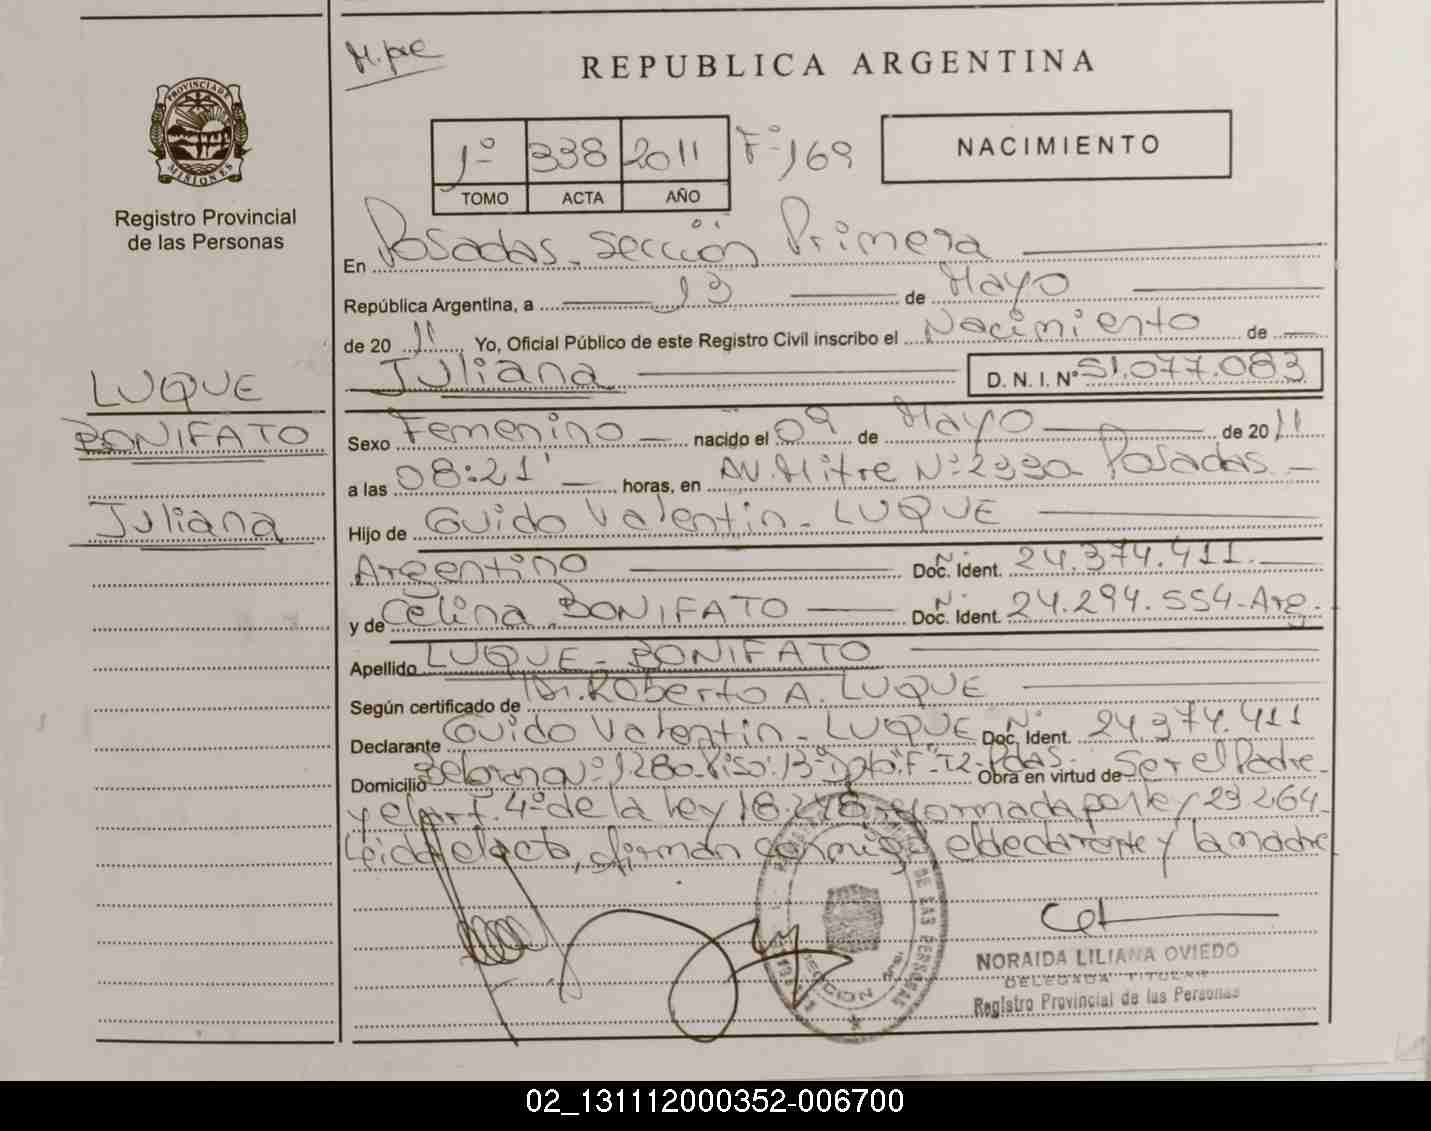 M.pre
REPUBLICA ARGENTINA
PROVINCIA DE
MISIONES
Registro Provincial
de las Personas
1º 338 2011 Fº 169
TOMO ACTA AÑO
NACIMIENTO
En Posadas. Sección Primera
República Argentina, a 13 de Mayo
de 2011 Yo, Oficial Público de este Registro Civil inscribo el Nacimiento de
Juliana D. N. I. Nº 51.077.083
LUQUE
BONIFATO
Juliana
Sexo Femenino nacido el 09 de Mayo de 2011
a las 08:21' horas, en AV. Mitre Nº 2390 Posadas
Hijo de Guido Valentin - LUQUE
Argentino Doc. Ident. Nº 24.374.411.
y de Celina BONIFATO Doc. Ident. Nº 24.294.554-Arg.
Apellido LUQUE - BONIFATO
Según certificado de Dr. Roberto A. LUQUE
Declarante Guido Valentin - LUQUE Doc. Ident. Nº 24.374.411
Domicilio Belgrano Nº 1280-Piso:13º Dpto."F"-T2-Pdas. Obra en virtud de Ser el Padre
y el art. 4º de la ley 18.248 reformada por ley 23.264
Leida el acta, firman conmigo el declarante y la madre
DE LAS PERSONAS
NORAIDA LILIANA OVIEDO
DELEGADA TITULAR
Registro Provincial de las Personas
02_131112000352-006700